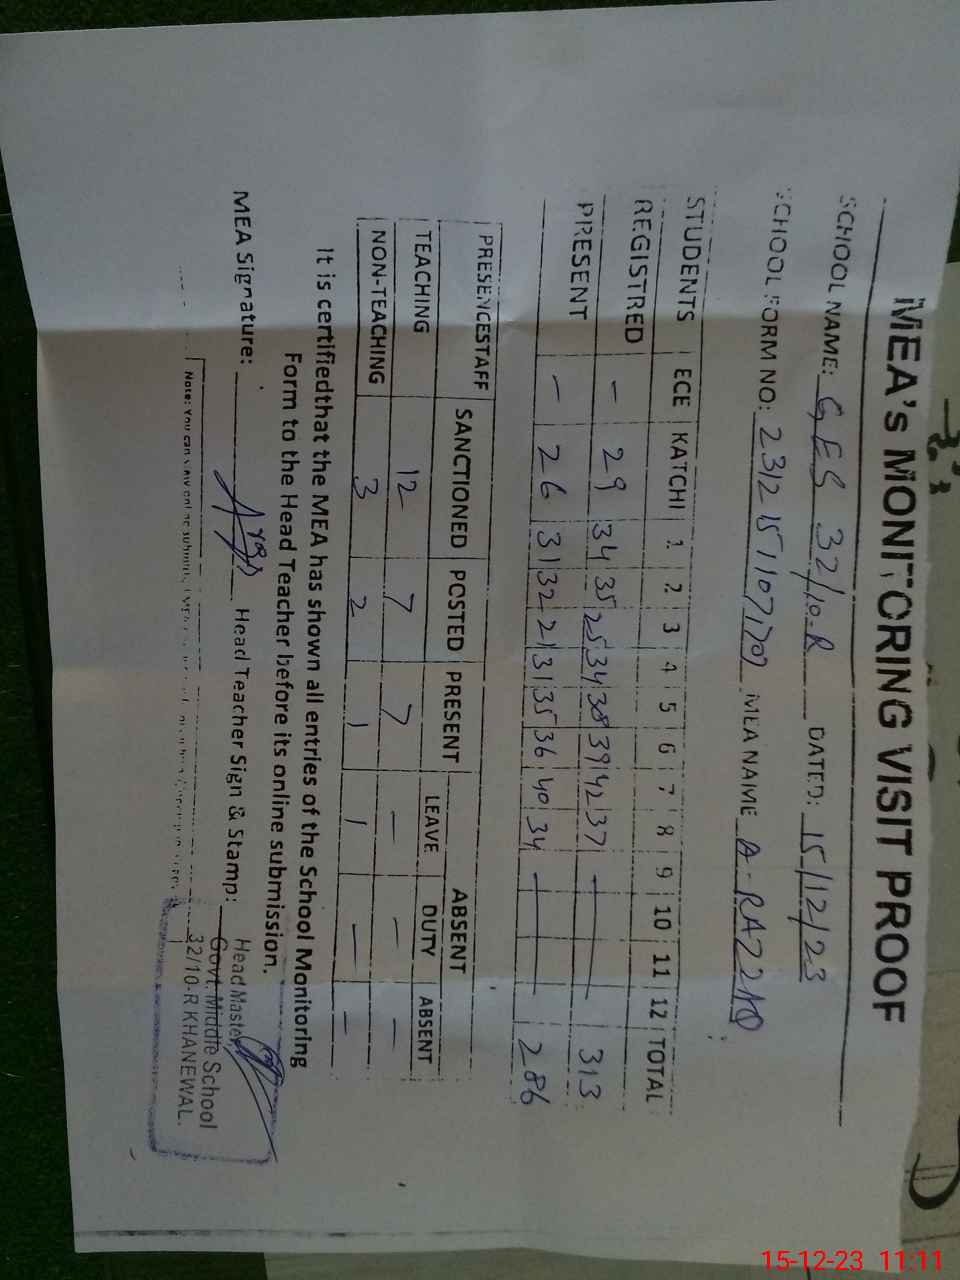 MEA's MONITORING VISIT PROOF
SCHOOL NAME: GES 32/10-R DATED: 15/12/23
SCHOOL FORM NO: MEA NAME A-RAZZAQ
STUDENTS ECE KATCHI 1 2 3 4 5 6 7 8 9 10 11 12 TOTAL
REGISTRED - 29 34 35 25 34 38 39 42 37 - 313
PRESENT - 26 31 32 21 31 35 36 40 34 - 286
PRESENCESTAFF SANCTIONED POSTED PRESENT ABSENT
LEAVE DUTY ABSENT
TEACHING 12 7 7 - - -
NON-TEACHING 3 2 1 1 - -
It is certifiedthat the MEA has shown all entries of the School Monitoring
Form to the Head Teacher before its online submission.
MEA Signature: Head Teacher Sign & Stamp:
Head Master
Govt. Middle School
32/10-R KHANEWAL.
Note: You can view online
15-12-23 11:11